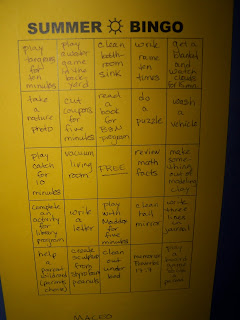 SUMMER BINGO
play
for
ten
minutes
play
a water
game
in the
back
yard
clean
bath
room
sink
write
name
ten
times
get a
blanket
and
watch
clouds
take
a
nature
photo
cut
coupons
for
five
minutes
read
a
book
for
program
do
a
puzzle
wash
a
vehicle
play
catch
for
10
minutes
vacuum
living
room
FREE
review
math
facts
make
some
thing
out of
clay
complete
an
activity
for
library
program
write
a
letter
play
with
for
five
minutes
clean
hall
mirror
write
three
lines
in
journal
help
a
parent
(parents
choice)
create
sculpture
from
styrofoam
peanuts
clean
out
under
bed
memorize
play
a